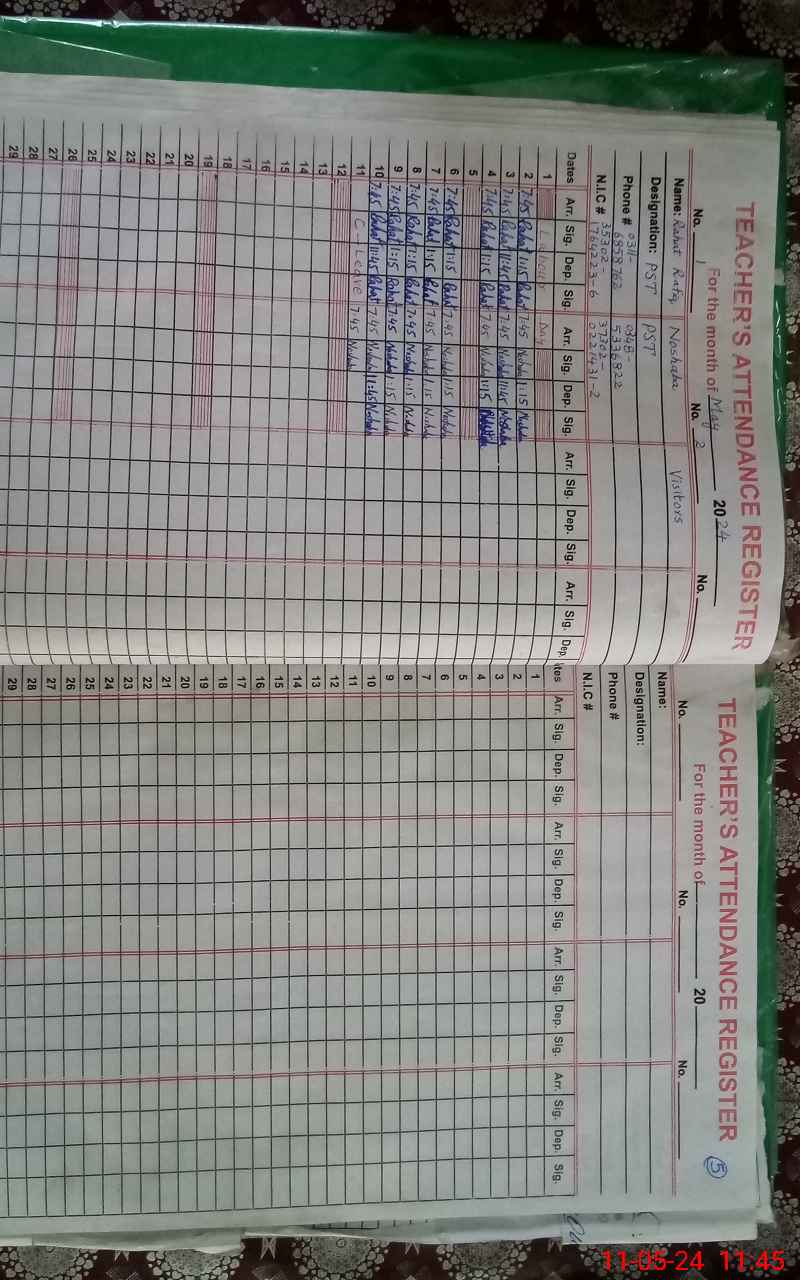 TEACHER'S ATTENDANCE REGISTER
For the month of May 2024
No. 1 No. 2 No.
Name: Rahat Rafiq Noshaba Visitors
Designation: PST PST
Phone # 0311- 0348-
6858762 5336822
N.I.C # 35302- 37302-
1764223-6 0221431-2
Dates Arr. Sig. Dep. Sig. Arr. Sig. Dep. Sig. Arr. Sig. Dep. Sig. Arr. Sig. Dep.
1 Labour Day
2 7:45 Rahat 1:15 Rahat 7:45 Nosheba 1:15 Nosheba
3 7:45 Rahat 11:45 Rahat 7:45 Nosheba 11:45 Nosheba
4 7:45 Rahat 1:15 Rahat 7:45 Nosheba 1:15
5
6 7:45 Rahat 1:15 Rahat 7:45 Nosheba 1:15 Nosheba
7 7:45 Rahat 1:15 Rahat 7:45 Nosheba 1:15 Nosheba
8 7:45 Rahat 1:15 Rahat 7:45 Nosheba 1:15 Nosheba
9 7:45 Rahat 1:15 Rahat 7:45 Nosheba 1:15 Nosheba
10 7:45 Rahat 11:45 Rahat 7:45 Nosheba 11:45 Nosheba
11 C-Leave 7:45 Nosheba
12
13
14
15
16
17
18
19
20
21
22
23
24
25
26
27
28
29
TEACHER'S ATTENDANCE REGISTER
5
For the month of 20
No. No. No.
Name:
Designation:
Phone #
N.I.C #
tes Arr. Sig. Dep. Sig. Arr. Sig. Dep. Sig. Arr. Sig. Dep. Sig. Arr. Sig. Dep. Sig.
1
2
3
4
5
6
7
8
9
10
11
12
13
14
15
16
17
18
19
20
21
22
23
24
25
26
27
28
29
11-05-24 11:45